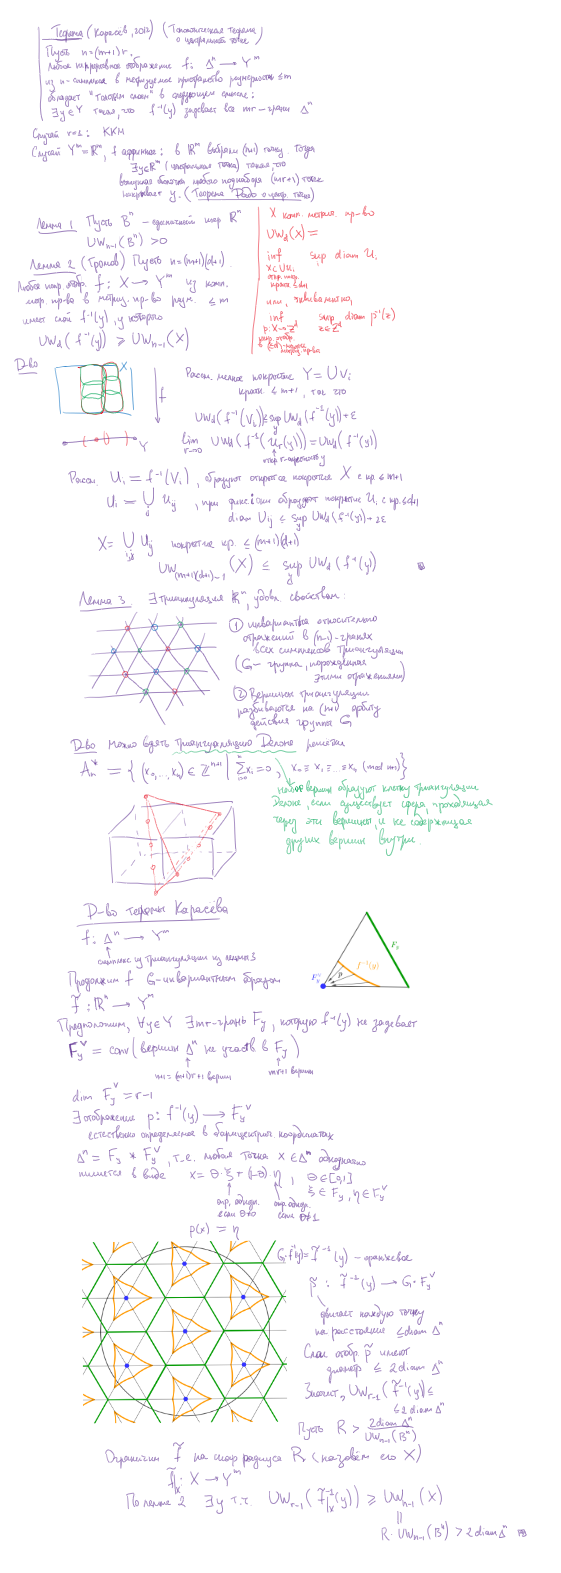 Теорема (Карасёв, 2012) (Топологическая теорема
о центральной точке)
Пусть n=(m+1)r.
Любое непрерывное отображение f: Δⁿ → Yᵐ
из n-симплекса в метризуемое пространство размерности ≤m
обладает "толстым слоем" в следующем смысле:
∃y∈Y такая, что f⁻¹(y) задевает все mr-грани Δⁿ
Случай r=1: KKM
Случай Yᵐ=ℝᵐ, f аффинное: в ℝᵐ выбрали (n+1) точку. Тогда
∃y∈ℝᵐ (центральная точка) такая что
выпуклая оболочка любого поднабора (mr+1) точек
накрывает y. (Теорема Радо о центр. точке)
Лемма 1 Пусть Bⁿ – единичный шар ℝⁿ
UWₙ₋₁(Bⁿ) >0
Лемма 2 (Громов) Пусть n=(m+1)(d+1).
Любое непр. отобр. f: X → Yᵐ из комп.
метр. пр-ва в метриз. пр-во разм. ≤ m
имеет слой f⁻¹(y), у которого
UW_d(f⁻¹(y)) ≥ UWₙ₋₁(X)
X комп. метрич. пр-во
UW_d(X) =
inf sup diam Uᵢ
X⊂∪Uᵢ
кратн ≤d+1
или, эквивалентно,
inf sup diam p⁻¹(z)
p: X→Zᵈ z∈Zᵈ
Д-во
X
f
Y
Рассм. мелкое покрытие Y=∪Vᵢ
кратн. ≤ m+1, так что
UW_d(f⁻¹(Vᵢ)) ≤ sup UW_d(f⁻¹(y))+ε
y
lim UW_d(f⁻¹(U_r(y))) = UW_d(f⁻¹(y))
r→0
откр r-окрестность y
Рассм. Uᵢ = f⁻¹(Vᵢ), образуют открытое покрытие X с кр. ≤ m+1
Uᵢ = ∪ Uᵢⱼ, при фикс i они образуют покрытие Uᵢ с кр. ≤d+1
j
diam Uᵢⱼ ≤ sup UW_d(f⁻¹(y)) + 2ε
y
X = ∪ Uᵢⱼ покрытие кр. ≤ (m+1)(d+1)
i,j
UW₍ₘ₊₁₎₍d₊₁₎₋₁(X) ≤ sup UW_d(f⁻¹(y))
y
Лемма 3 ∃ триангуляция ℝⁿ, удовл. свойствам:
① инвариантна относительно
отражений в (n-1)-гранях
всех симплексов триангуляции
(G – группа, порождённая
этими отражениями)
② Вершины триангуляции
разбиваются на (n+1) орбиту
действия группы G
Д-во Можно взять триангуляцию Делоне решетки
Aₙ* = { (x₀,...,xₙ) ∈ ℤⁿ⁺¹ | Σxᵢ=0, x₀≡x₁≡...≡xₙ (mod n+1) }
набор вершин образуют клетку триангуляции
Делоне, если существует сфера, проходящая
через эти вершины, и не содержащая
других вершин внутри.
Д-во теоремы Карасёва
f: Δⁿ → Yᵐ
симплекс из триангуляции из леммы 3
Продолжим f G-инвариантным образом
f̃: ℝⁿ → Yᵐ
Предположим, ∀y∈Y ∃mr-грань F_y, которую f⁻¹(y) не задевает
F_y^∨ = conv(вершин Δⁿ не участв в F_y)
n+1 = (m+1)r+1 вершин mr+1 вершин
F_y
f⁻¹(y)
p
F_y^∨
dim F_y^∨ = r-1
∃ отображение p: f⁻¹(y) → F_y^∨
естественно определяемое в барицентрич. координатах
Δⁿ = F_y * F_y^∨, т.е. любая точка x∈Δⁿ однозначно
пишется в виде x = θ·ξ + (1-θ)·η, θ∈[0,1]
ξ∈F_y, η∈F_y^∨
опр. однозн. если θ≠0
опр. однозн. если θ≠1
p(x) = η
G·f⁻¹(y) = f̃⁻¹(y) – оранжевое
p̃: f̃⁻¹(y) → G·F_y^∨
двигает каждую точку
на расстояние ≤ diam Δⁿ
Слои отобр. p̃ имеют
диаметр ≤ 2 diam Δⁿ
Значит, UW_r₋₁(f̃⁻¹(y)) ≤
≤ 2 diam Δⁿ
Пусть R > 2diam Δⁿ / UWₙ₋₁(Bⁿ)
Ограничим f̃ на шар радиуса R (назовём его X)
f̃|_X: X → Yᵐ
По лемме 2 ∃y т.ч. UW_r₋₁(f̃|_X⁻¹(y)) ≥ UWₙ₋₁(X)
=
R·UWₙ₋₁(Bⁿ) > 2 diam Δⁿ